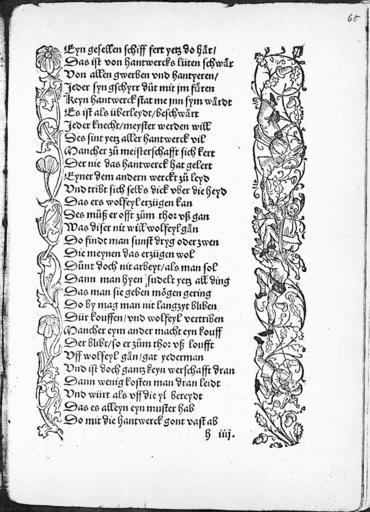 60
Eyn gesellen schiff fert yetz do här/
Das ist von hantwercks lüten schwär
Von allen gwerben vnd hantyeren/
Jeder syn gschyrr důt mit jm fůren
Keyn hantwerck stat me jnn sym wärdt
Es ist als überleydt/beschwärt
Jeder knecht/meyster werden will
Des sint yetz aller hantwerck vil
Mancher zů meisterschafft sich kert
Der nie das hantwerck hat gelert
Eyner dem andern werckt zů leyd
Vnd tribt sich selbs dick vber die heyd
Das ers wolfeyl erzügen kan
Des můß er offt zům thor vß gan
Was diser nit will wolfeyl gän
Do findt man sunst dryg oder zwen
Die meynen das erzügen wol
Dünt doch nit arbeyt/als man sol
Dann man hyen sudelt yetz all ding
Das man sie geben mögen gering
Do by mag man nit langzyt bliben
Dür kouffen/vnd wolfeyl vertriben
Mancher eym ander macht eyn kouff
Der blibt/so er zům thor vß loufft
Vff wolfeyl gän/gat yederman
Vnd ist doch gantz keyn werschafft dran
Dann wenig kosten man dran leidt
Vnd würt als vff die yl bereydt
Das es alleyn eyn muster hab
Do mit die hantwerck gont vast ab
h iiii.